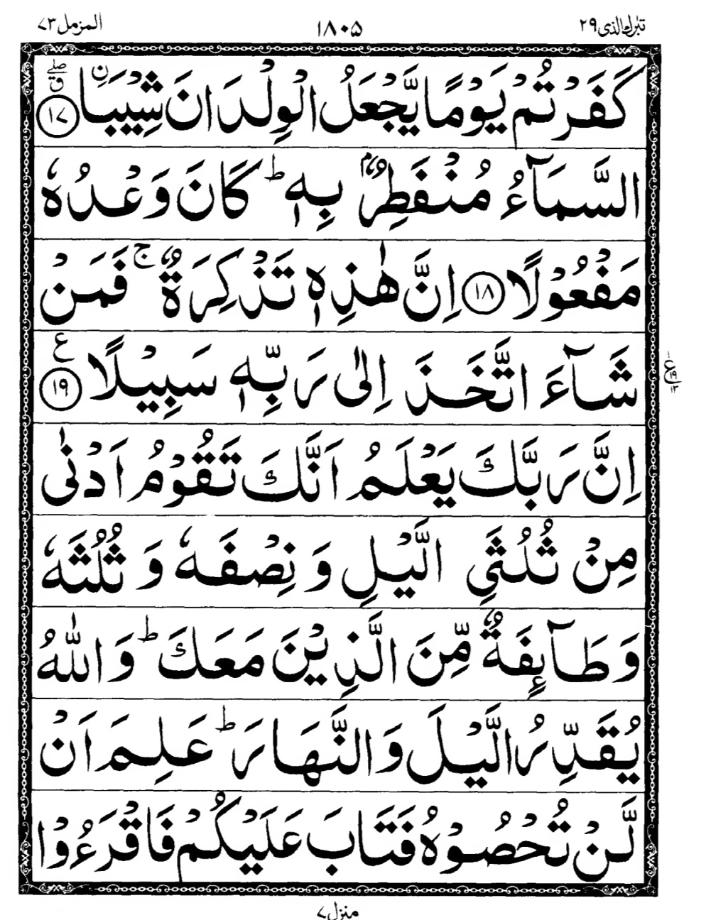 تبٰرك الذی ۲۹ ۱۸۰۵ المزمل ۷۳
كَفَرْتُمْ يَوْمًا يَّجْعَلُ الْوِلْدَانَ شِيْبَاۨ ۝۱۷ۖق
السَّمَآءُ مُنْفَطِرٌۢ بِهٖ ؕ كَانَ وَعْدُهٗ
مَفْعُوْلًا ۝۱۸ اِنَّ هٰذِهٖ تَذْكِرَةٌ ۚ فَمَنْ
شَآءَ اتَّخَذَ اِلٰى رَبِّهٖ سَبِيْلًا ۝۱۹ ع
ع ۱۹ ۱۳
اِنَّ رَبَّكَ يَعْلَمُ اَنَّكَ تَقُوْمُ اَدْنٰى
مِنْ ثُلُثَيِ الَّيْلِ وَنِصْفَهٗ وَ ثُلُثَهٗ
وَطَآىِٕفَةٌ مِّنَ الَّذِيْنَ مَعَكَ ؕ وَاللّٰهُ
يُقَدِّرُ الَّيْلَ وَالنَّهَارَ ؕ عَلِمَ اَنْ
لَّنْ تُحْصُوْهُ فَتَابَ عَلَيْكُمْ فَاقْرَءُوْا
منزل ۷